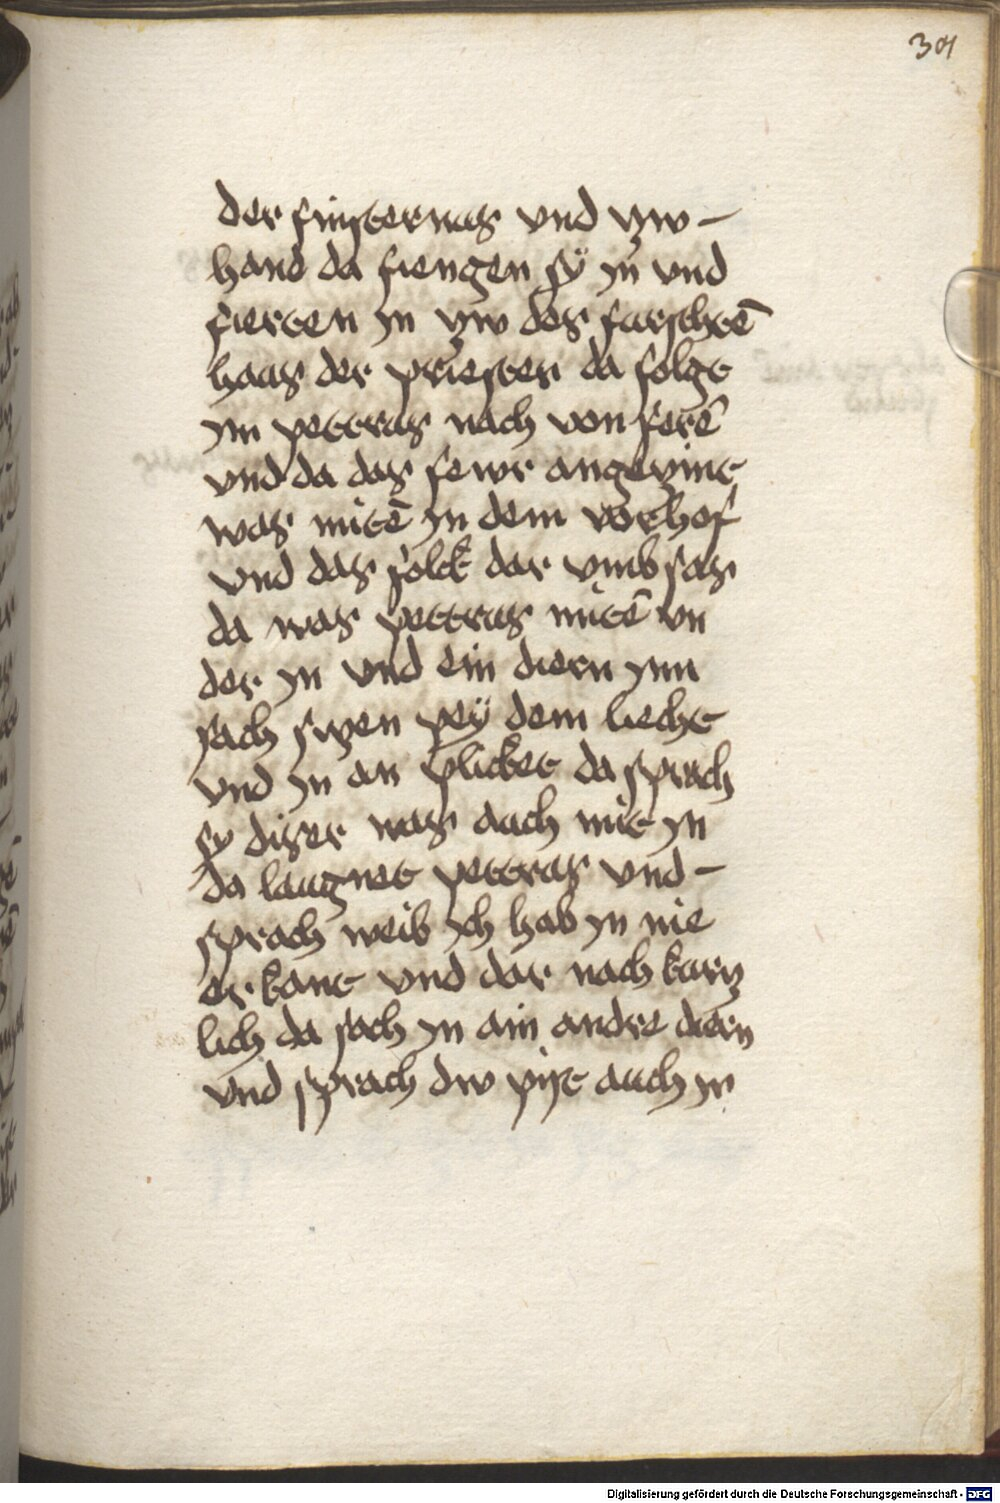 301
der finsternus vnd zw-
hand da fiengen sÿ yn vnd
fierten yn zw des furschtē
haus der priester da folgt
ym pettrus nach von ferē
vnd da das fewr angezint
was mitē yn dem vorhof
vnd das folck dar vmb sas
da was pettrus mitē vn
der yn vnd ein diern ynn
sach siczen peÿ dem liecht
vnd yn an plicket da sprach
sy diser was auch mit yn
da laugnet pettrus vnd-
sprach weib ich hab yn nie
er kant vnd dar nach kurcz
lich da sach yn ain andre diern
vnd sprach dw pist auch yn
Digitalisierung gefördert durch die Deutsche Forschungsgemeinschaft - DFG